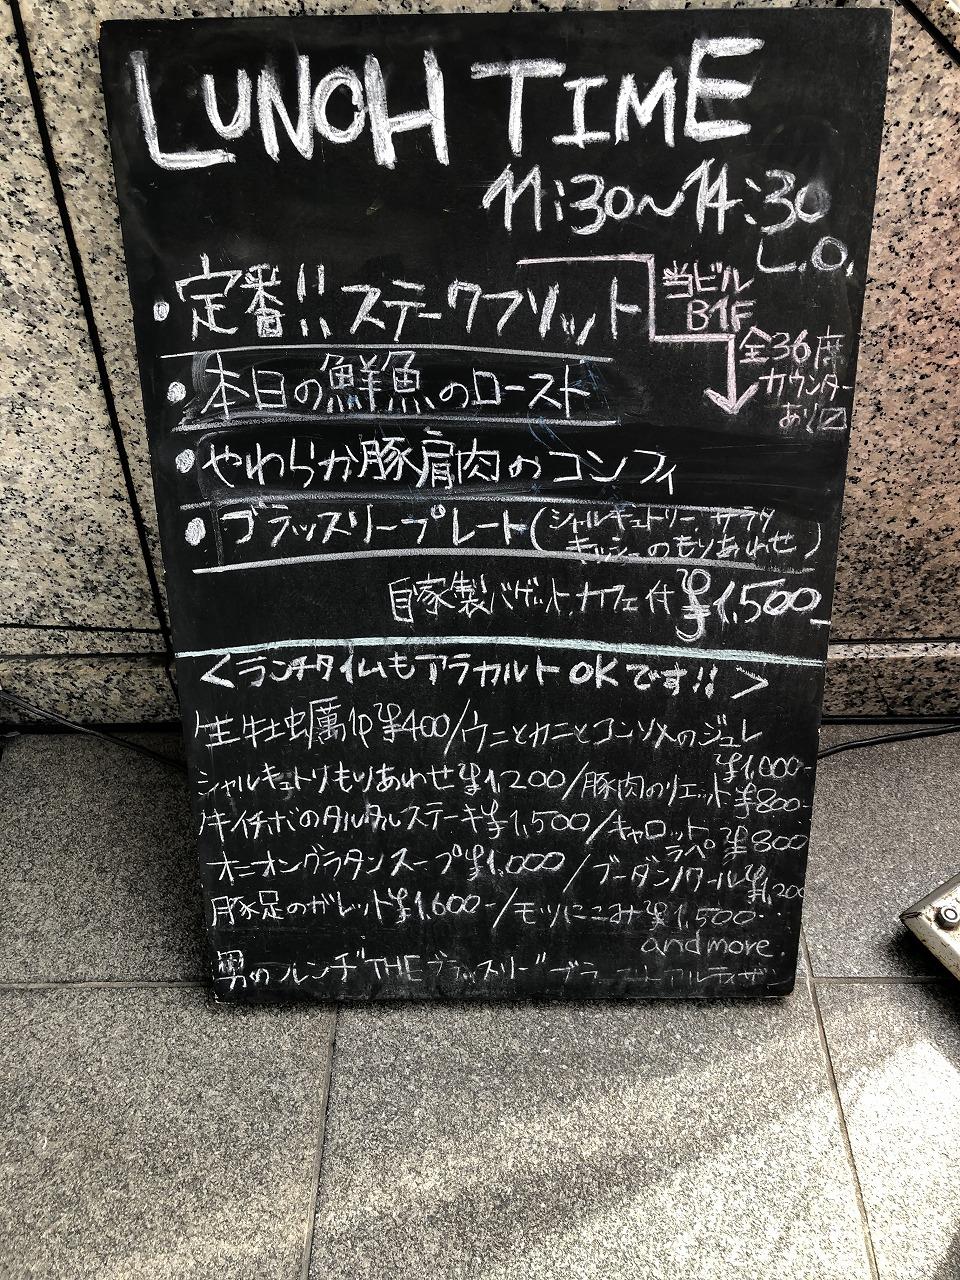 LUNCH TIME
11:30~14:30
L.O.
・定番!!ステークフリット
当ビル
B1F
全36席
カウンター
あり
・本日の鮮魚のロースト
・やわらか豚肩肉のコンフィ
・ブラッスリープレート(シャルキュトリー、サラダ
キッシュのもりあわせ)
自家製バゲット、カフェ付 ¥1,500-
<ランチタイムもアラカルトOKです!!>
生牡蠣1P¥400/ウニとカニとコンソメのジュレ
¥1,000-
シャルキュトリもりあわせ¥1,200/豚肉のリエット¥800-
イチボのタルタルステーキ¥1,500/キャロット
ラペ ¥800
オニオングラタンスープ¥1,000/ブーダンノワール¥1,200
豚足のガレット¥1,600-/モツにこみ¥1,500
and more.
男のフレンチ"THEブラッスリー"